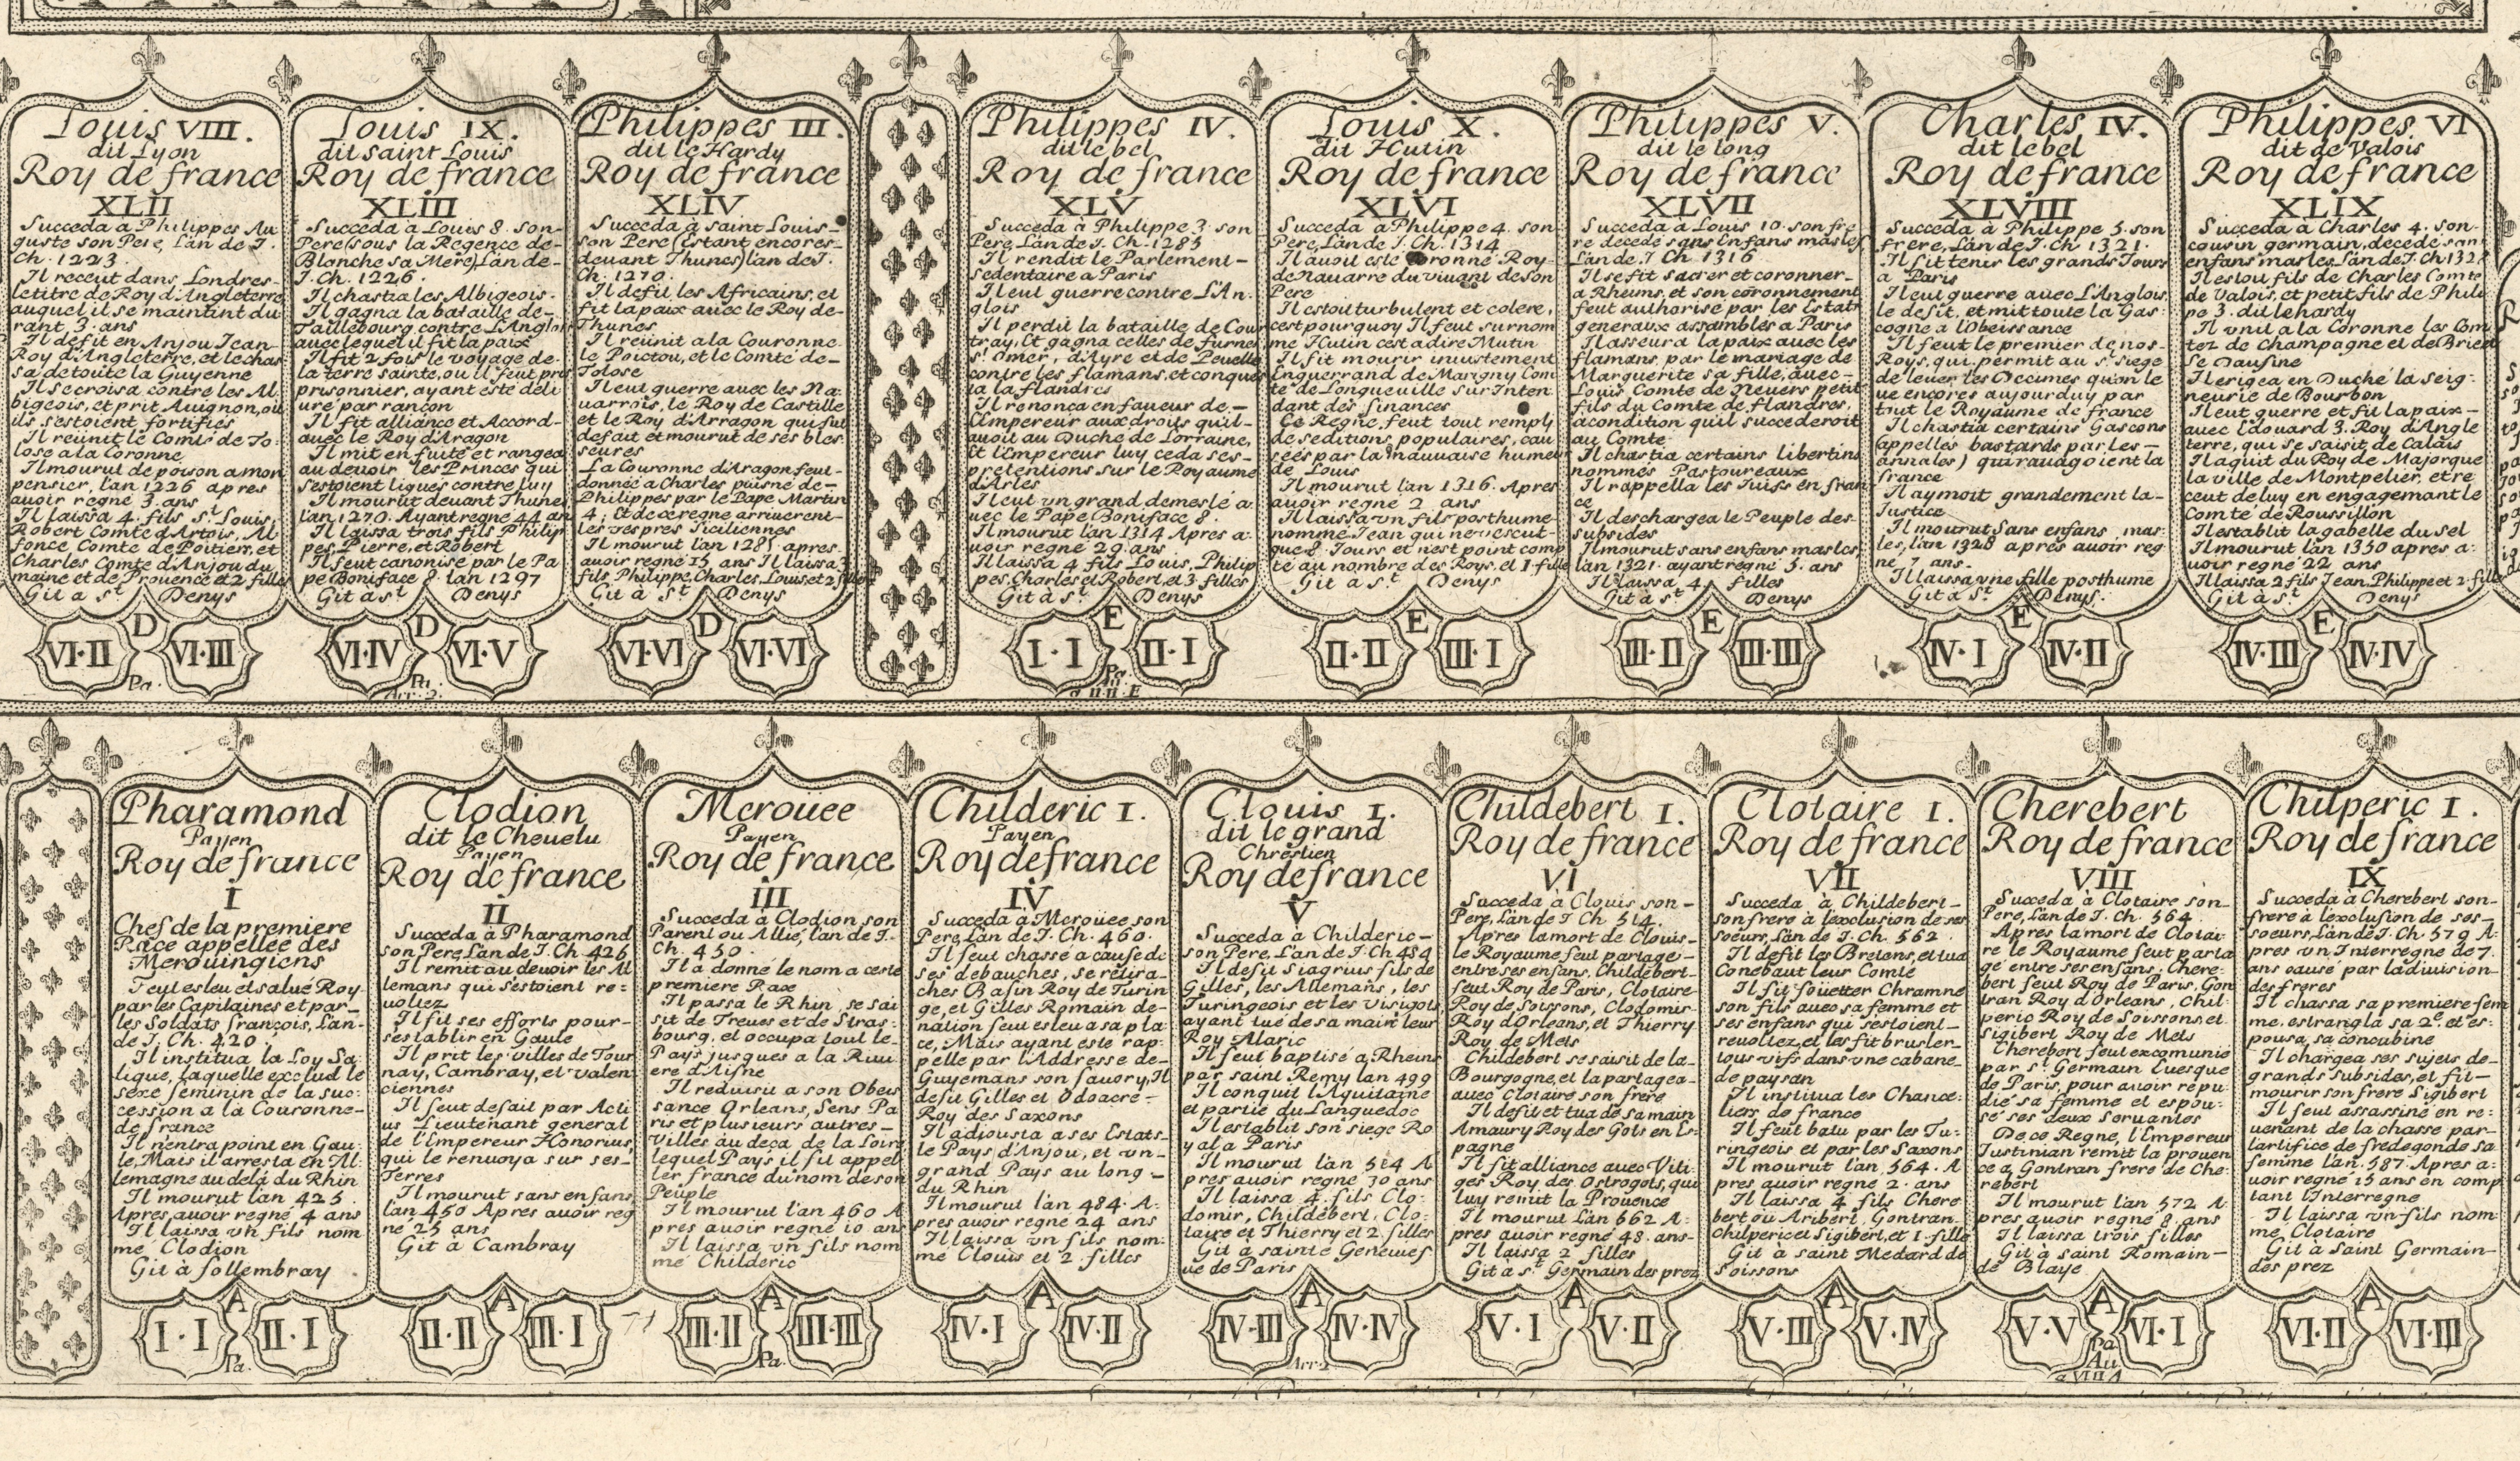 Louis VIII.
dit Lyon
Roy de france
XLII
Succeda à Philippes Au
guste son Pere, L'an de J.
Ch. 1223.
Il receut dans Londres
le titre de Roy d'Angleterre
auquel il se maintint du
rant 3. ans
Il défit en Anjou Jean
Roy d'Angleterre, et le chas
sa de toute la Guyenne
Il se croisa contre les Al
bigeois, et prit Auignon, ou
ils s'estoient fortifiés
Il reünit le Comté de To:
lose a la Coronne
Il mourut de poison a mon
pensier, l'an 1226 apres
auoir regné 3. ans
Il laissa 4. fils St. Louis,
Robert Comte d'Artois, Al
fonce Comte de Poitiers, et
Charles Comte d'Anjou du
maine et de Prouence et 2 filles
Git a St. Denys
D
VI·II VI·III
Pa.
Louis IX.
dit saint Louis
Roy de france
XLIII
Succeda à Louis 8. son
Pere (sous la Regence de
Blanche sa Mere) L'an de
J. Ch. 1226.
Il chastia les Albigeois.
Il gagna la bataille de
Taillebourg contre L'Anglois
auec lequel il fit la paix
Il fit 2 fois le voyage de
la terre sainte, ou il feut pres
prisonnier, ayant esté deli
uré par rançon
Il fit alliance et Accord
auec le Roy d'Aragon
Il mit en fuite et rangea
au deuoir les Princes qui
s'estoient ligués contre luy
Il mourut deuant Thunes
l'an 1270. Ayant regné 44 an
Il laissa trois fils Philip
pes, Pierre, et Robert
Il feut canonisé par le Pa
pe Boniface 8. lan 1297
Git a St Denys
D
VI·IV VI·V
Pa
Arr. 2.
Philippes III.
dit le Hardy
Roy de france
XLIV
Succeda à saint Louis
son Pere (estant encores
deuant Thunes) l'an de J.
Ch. 1270.
Il defit les Africains, et
fit la paix auec le Roy de
Thunes
Il reünit a la Couronne
le Poictou, et le Comté de
Tolose
Il eut guerre auec les Na
uarrois, le Roy de Castille
et le Roy d'Arragon qui fut
defait et mourut de ses bles
seures
La Couronne d'Aragon feut
donnée a Charles puisné de
Philippes par le Pape Martin
4; Et de ce regne arriuerent
les vespres siciliennes
Il mourut l'an 1285 apres
auoir regné 15 ans Il laissa 3
fils, Philippe, Charles, Louis et 2 filles
Git à St Denys
D
VI·VI VI·VI
Philippes IV.
dit le bel
Roy de france
XLV
Succeda à Philippe 3. son
Pere, L'an de J. Ch. 1285
Il rendit le Parlement
sedentaire a Paris
Il eut guerre contre L'An.
glois
Il perdit la bataille de Cour
tray, Et gagna celles de furnes
St. Omer, d'Ayre et de Peuelle
contre les flamans, et conquesta
ta la flandres
Il renonça en faueur de
l'Empereur aux droits qu'il
auoit au Duché de Lorraine,
Et l'Empereur luy ceda ses
pretentions sur le Royaume
d'Arles
Il eut vn grand demeslé a
uec le Pape Boniface 8.
Il mourut l'an 1314 Apres a:
uoir regné 29 ans
Il laissa 4 fils Louis, Philip
pes, Charles et Robert, et 3. filles
Git à St. Denys
E
I·I II·I
Louis X.
dit Hutin
Roy de france
XLVI
Succeda à Philippe 4. son
Pere, L'an de J. Ch. 1314
Il auoit esté Coronné Roy
de Nauarre du viuant de son
Pere
Il estoit turbulent et colere,
c'est pourquoy Il feut surnom
mé Hutin cest adire Mutin
Il fit mourir iniustement
Enguerrand de Marigny Com
te de Longueuille Sur Inten
dant des finances
Ce Regne, feut tout remply
de seditions populaires, cau
sées par la mauuaise humeur
de Louis
Il mourut l'an 1316. Apres
auoir regné 2 ans
Il laissa vn fils posthume
nommé Jean qui ne vescut
que 8 Jours et n'est point comp
té au nombre des Roys, et 1 fille
Git a St. Denys
E
II·II III·I
Philippes V.
dit le long
Roy de france
XLVII
Succeda à Louis 10. son fre
re decedé sans Enfans masles
L'an de J Ch. 1316
Il se fit sacrer et coronner
a Rheims, et son coronnement
feut authorisé par les Estats
generaux assamblés a Paris
Il asseura la paix auec les
flamans, par le mariage de
Marguerite sa fille, auec
Louis Comte de Neuers petit
fils du Comte de flandres,
acondition qu'il succederoit
au Comte
Il chastia certains libertins
nommés Pastoureaux
Il rappella les Juifs en fran
ce
Il deschargea le Peuple des
subsides
Il mourut sans enfans masles,
l'an 1321. ayant regné 5. ans
Il laissa 4 filles
Git a St Denys
E
III·II III·III
Charles IV.
dit le bel
Roy de france
XLVIII
Succeda à Philippe 5. son
frere, L'an de J. Ch 1321.
Il fit tenir les grands Jours
a Paris
Il eut guerre auec L'Anglois,
le defit, et mit toute la Gas:
cogne a l'Obeissance
Il feut le premier de nos
Roys, qui permit au St Siege
de leuer les Decimes qu'on le
ue encores aujourduy par
tout le Royaume de france
Il chastia certains Gascons
(appellés bastards par les
annales) qui rauagoient la
france
Il aymoit grandement la
Justice
Il mourut sans enfans mas:
les, l'an 1328 apres auoir reg
né 7 ans.
Il laissa vne fille posthume
Git à St. Denys.
E
IV·I IV·II
Philippes VI
dit de Valois
Roy de france
XLIX
Succeda à Charles 4. son
cousin germain, decedé sans
enfans masles L'an de J. Ch 1328
Il estoit fils de Charles Comte
de Valois, et petit fils de Phili
pe 3. dit le hardy
Il vnit a la Coronne les Com
tez de Champagne et de Brie et
le Daufiné
Il erigea en Duché la Seig:
neurie de Bourbon
Il eut guerre et fit la paix
auec Edouard 3. Roy d'Angle
terre, qui se saisit de Calais
Il aquit du Roy de Majorque
la ville de Montpelier, et re
ceut de luy en engagement le
Comté de Roussillon
Il establit la gabelle du sel
Il mourut l'an 1350 apres a:
uoir regné 22 ans
Il laissa 2 fils Jean, Philippe et 2 filles
Git a St. Denys
E
IV·III IV·IV
Pharamond
Payen
Roy de france
I
Chef de la premiere
Race appellée des
Merouingiens
Feut esleu et salué Roy
par les Capitaines et par
les Soldats françois, L'an
de J. Ch. 420.
Il institua la Loy Sa
lique, laquelle exclud le
sexe feminin de la suc:
cession a la Couronne
de france
Il n'entra point en Gau
le, Mais il arresta en Al
lemagne au delà du Rhin
Il mourut l'an 425.
Apres auoir regné 4 ans
Il laissa vn fils nom
mé Clodion
Git à follembray
A
I·I II·I
Pa.
Clodion
dit le Cheuelu
Payen
Roy de france
II
Succeda à Pharamond
son Pere, L'an de J. Ch 426
Il remit au deuoir les Al
lemans qui s'estoient re:
uoltez
Il fit ses efforts pour
s'establir en Gaule
Il prit les villes de Tour
nay, Cambray, et valen
ciennes
Il feut defait par Acti
us Lieutenant general
de l'Empereur Honorius,
qui le renuoya sur ses
Terres
Il mourut sans enfans,
l'an 450 Apres auoir reg
né 25 ans
Git à Cambray
A
II·II III·I
Meroüee
Payen
Roy de france
III
Succeda à Clodion son
Parent ou Allié, l'an de J.
Ch. 450.
Il a donné le nom a ceste
premiere Race
Il passa le Rhin, se sai
sit de Treues et de Stras:
bourg, et occupa tout le
Pays jusques a la Riui
ere d'Aisne
Il reduisit a son Obeis
sance Orleans, Sens Pa
ris et plusieurs autres
villes au deça de la Loire
lequel Pays il fit appel
ler france du nom de son
Peuple
Il mourut l'an 460 A
pres auoir regné 10 ans
Il laissa vn fils nom
mé Childeric
A
III·II III·III
Pa.
Childeric I.
Payen
Roy de france
IV
Succeda à Meroüee son
Pere, L'an de J. Ch. 460.
Il feut chassé a cause de
ses debauches, se retira
ches Basin Roy de Turin
ge, et Gilles Romain de
nation feut esleu a sa pla
ce, Mais ayant esté rap:
pellé par l'Addresse de
Guyemans son fauory, Il
defit Gilles et Odoacre
Roy des Saxons
Il adiousta a ses Estats
le Pays d'Anjou, et vn
grand Pays au long
du Rhin
Il mourut l'an 484. A:
pres auoir regné 24 ans
Il laissa vn fils nom:
mé Clouis et 2 filles
A
IV·I IV·II
Clouis I.
dit le grand
Chrestien
Roy de france
V
Succeda à Childeric
son Pere, L'an de J. Ch 484
Il defit Siagrius fils de
Gilles, les Allemans, les
Turingeois et les Visigots
ayant tué de sa main leur
Roy Alaric
Il feut baptisé a Rheims
par saint Remy l'an 499
Il conquit l'Aquitaine
et partie du Languedoc
Il establit son siege Ro
yal a Paris
Il mourut l'an 514 A
pres auoir regné 30 ans
Il laissa 4. fils Clo:
domir, Childebert, Clo:
taire et Thierry et 2 filles
Git à sainte Geneuief
ue de Paris
A
IV·III IV·IV
Arr. 2
Childebert I.
Roy de france
VI
Succeda à Clouis son
Pere, L'an de J Ch. 514.
Apres la mort de Clouis
le Royaume feut partagé
entre ses enfans, Childebert
feut Roy de Paris, Clotaire
Roy de Soissons, Clodomir
Roy d'Orleans, et Thierry
Roy de Mets
Childebert se saisit de la
Bourgogne, et la partagea
auec Clotaire son frere
Il defit et tua de sa main
Amaury Roy des Gots en Es
pagne
Il fit alliance auec Viti:
gés Roy des Ostrogots, qui
luy remit la Prouence
Il mourut L'an 562 A:
pres auoir regné 48. ans
Il laissa 2 filles
Git a St Germain des prez
A
V·I V·II
Clotaire I.
Roy de france
VII
Succeda à Childebert
son frere à l'exclusion de ses
soeurs, L'an de J. Ch. 562.
Il defit les Bretons, et tua
Conebaut leur Comte
Il fit foüetter Chramne
son fils auec sa femme et
ses enfans qui s'estoient
reuoltez, et les fit brusler
tous vifs dans vne cabane
de paysan
Il institua les Chance:
liers de france
Il feut batu par les Tu:
ringeois et par les Saxons
Il mourut l'an 564. A
pres auoir regné 2. ans
Il laissa 4 fils Chere
bert ou Aribert, Gontran
Chilperic et Sigibert, et 1. fille
Git a saint Medard de
Soissons
A
V·III V·IV
Cherebert
Roy de france
VIII
Succeda à Clotaire son
Pere, L'an de J. Ch. 564.
Apres la mort de Clotai
re le Royaume feut parta
gé entre ses enfans, Chere:
bert feut Roy de Paris, Gon
tran Roy d'Orleans, Chil
peric Roy de Soissons, et
Sigibert Roy de Mets
Cherebert feut excomunié
par St. Germain Euesque
de Paris, pour auoir repu:
dié sa femme et espou:
sé ses deux Seruantes
De ce Regne, l'Empereur
Justinian remit la prouen
ce a Gontran frere de Che:
rebert
Il mourut l'an 572 A
pres auoir regné 8 ans
Il laissa trois filles
Git à saint Romain
de Blaye
A
V·V VI·I
Pa
Au
a VIII A
Chilperic I.
Roy de france
IX
Succeda à Cherebert son
frere à l'exclusion de ses
soeurs, L'an de J. Ch. 579 A
pres vn Interregne de 7.
ans causé par la diuision
des freres
Il chassa sa premiere fem
me, estrangla sa 2e. et es:
pousa sa concubine
Il chargea ses sujets de
grands subsides, et fit
mourir son frere Sigibert
Il feut assassiné en re:
uenant de la chasse par
l'artifice de fredegonde sa
femme l'an. 587. Apres a:
uoir regné 15 ans en comp
tant l'Interregne
Il laissa vn fils nom
mé Clotaire
Git à Saint Germain
des prez
A
VI·II VI·III